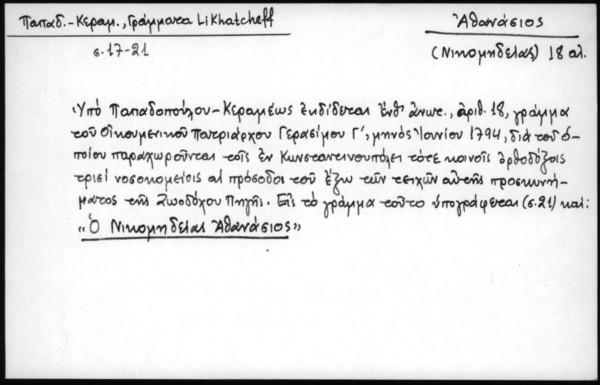 Παπαδ.-Κεραμ., Γράμματα Likhatcheff
Ἀθανάσιος
σ. 17-21
(Νικομηδείας) 18 αἰ.
Ὑπὸ Παπαδοπούλου-Κεραμέως ἐκδίδεται ἔνθ' ἀνωτ., ἀριθ. 18, γράμμα
τοῦ Οἰκουμενικοῦ Πατριάρχου Γερασίμου Γ', μηνὸς Ἰουνίου 1794, διὰ τοῦ ὁ-
ποίου παραχωροῦνται τοῖς ἐν Κωνσταντινουπόλει τότε κοινοῖς ὀρθοδόξοις
τρισὶ νοσοκομείοις αἱ πρόσοδοι τοῦ ἔξω τῶν τειχῶν αὐτῆς προσκυνή-
ματος τῆς Ζωοδόχου Πηγῆς. Εἰς τὸ γράμμα τοῦτο ὑπογράφεται (σ. 21) καὶ:
"Ὁ Νικομηδείας Ἀθανάσιος"